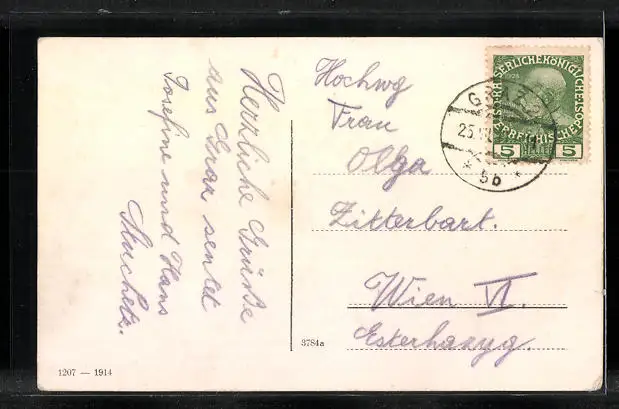 Herzliche Grüße
aus Graz sendet
Josefine und Hans
Hochwg
Frau
Olga
Zitterbart.
Wien VI.
Esterhazyg.
KAISERLICHE KÖNIGLICHE
ÖSTERREICHISCHE POST
5 HELLER 5
GRAZ
25
5b
3784a
1207 — 1914